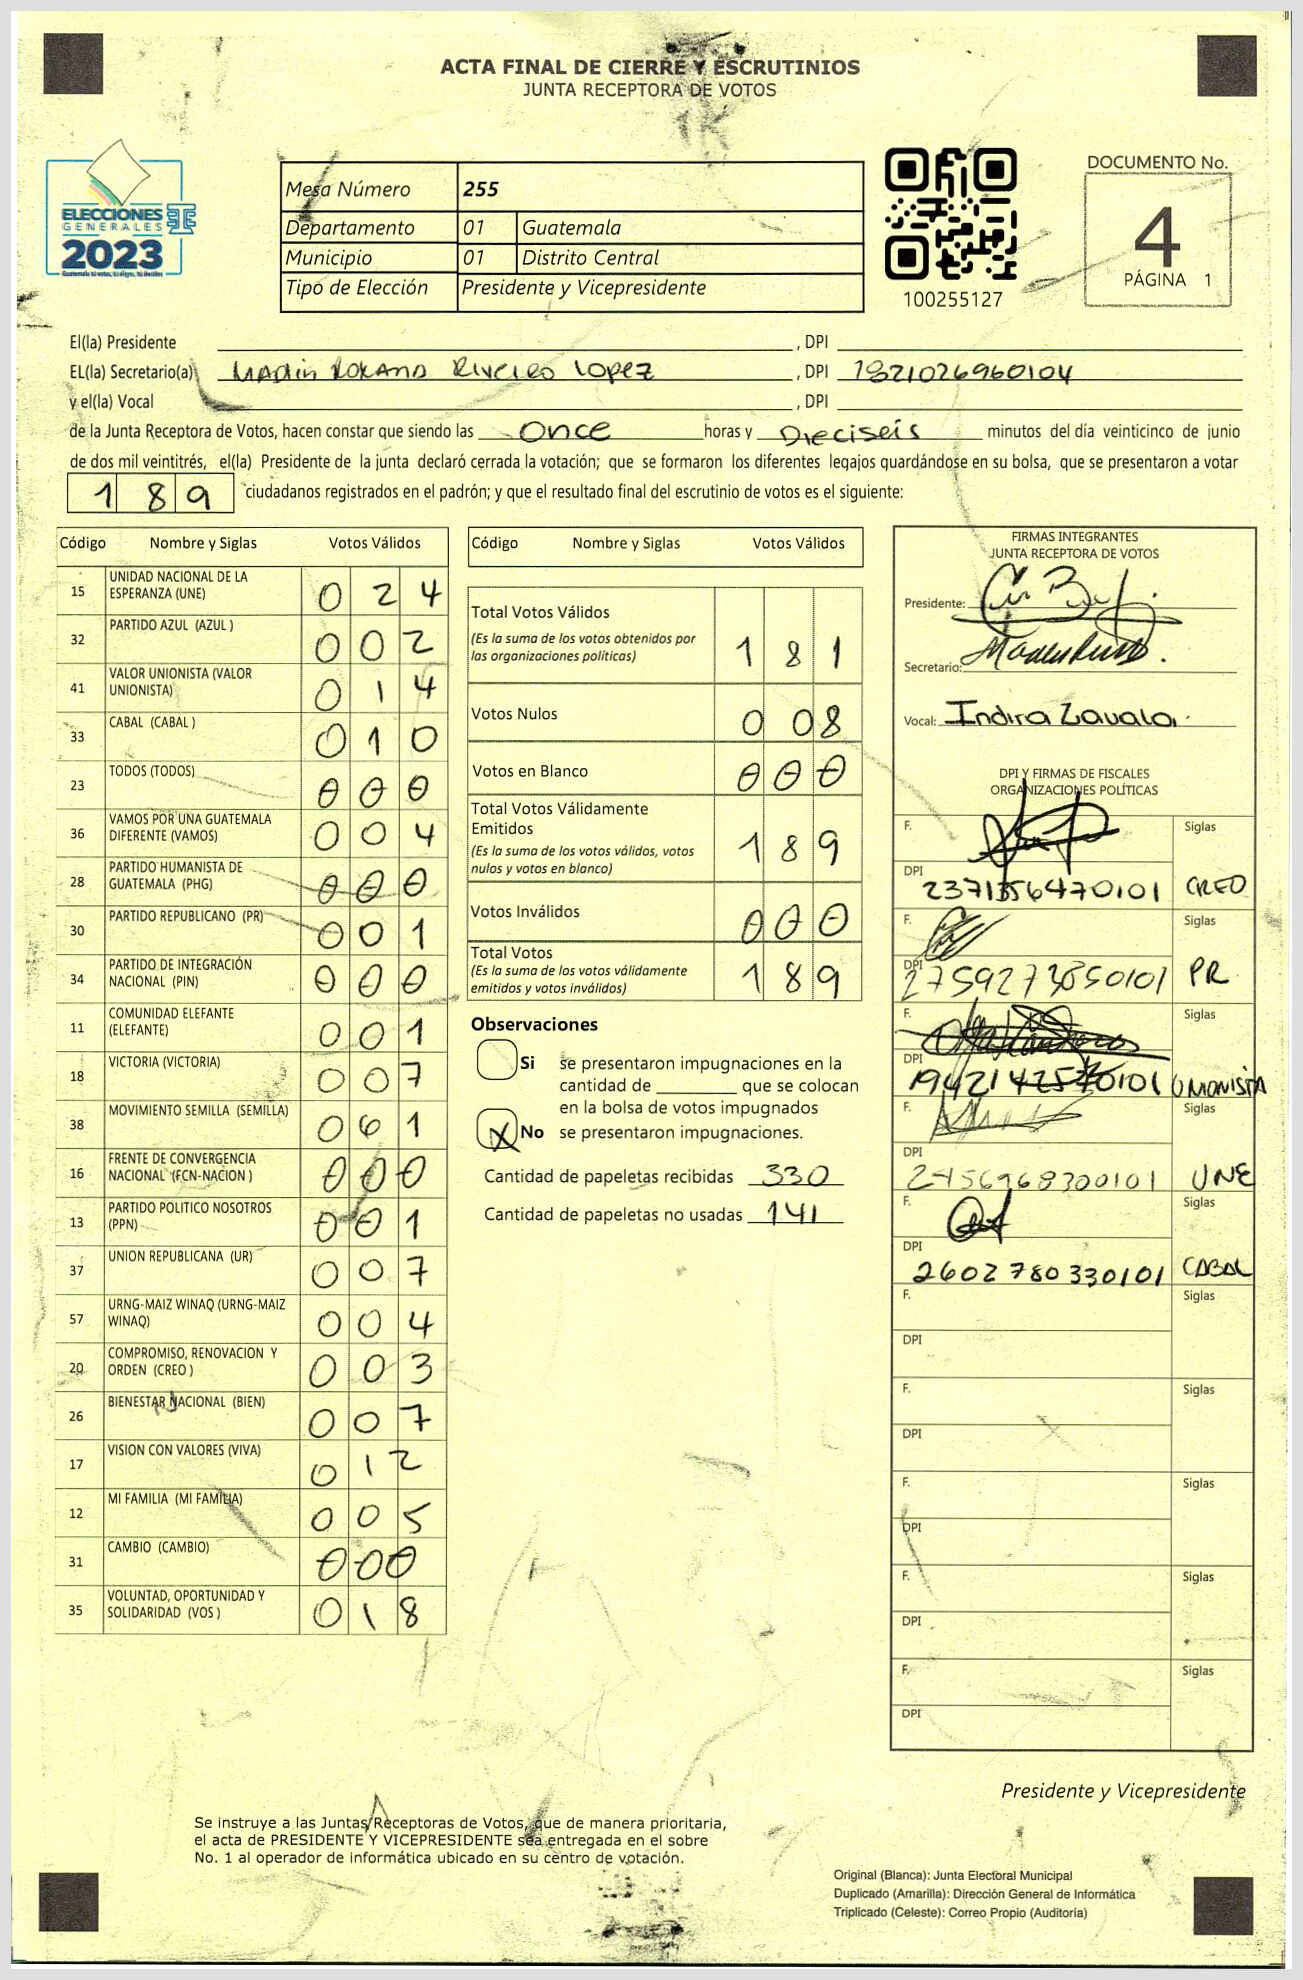 ACTA FINAL DE CIERRE Y ESCRUTINIOS
JUNTA RECEPTORA DE VOTOS
ELECCIONES
GENERALES
2023
Mesa Número 255
Departamento 01 Guatemala
Municipio 01 Distrito Central
Tipo de Elección Presidente y Vicepresidente
100255127
DOCUMENTO No.
4
PÁGINA 1
El(la) Presidente , DPI
EL(la) Secretario(a) , DPI 1821026960104
y el(la) Vocal , DPI
de la Junta Receptora de Votos, hacen constar que siendo las Once horas y Dieciseis minutos del día veinticinco de junio
de dos mil veintitrés, el(la) Presidente de la junta declaró cerrada la votación; que se formaron los diferentes legajos quardándose en su bolsa, que se presentaron a votar
189 ciudadanos registrados en el padrón; y que el resultado final del escrutinio de votos es el siguiente:
Código Nombre y Siglas Votos Válidos
15 UNIDAD NACIONAL DE LA ESPERANZA (UNE) 024
32 PARTIDO AZUL (AZUL ) 002
41 VALOR UNIONISTA (VALOR UNIONISTA) 014
33 CABAL (CABAL ) 010
23 TODOS (TODOS) 000
36 VAMOS POR UNA GUATEMALA DIFERENTE (VAMOS) 004
28 PARTIDO HUMANISTA DE GUATEMALA (PHG) 000
30 PARTIDO REPUBLICANO (PR) 001
34 PARTIDO DE INTEGRACIÓN NACIONAL (PIN) 000
11 COMUNIDAD ELEFANTE (ELEFANTE) 001
18 VICTORIA (VICTORIA) 007
38 MOVIMIENTO SEMILLA (SEMILLA) 061
16 FRENTE DE CONVERGENCIA NACIONAL (FCN-NACION ) 000
13 PARTIDO POLITICO NOSOTROS (PPN) 001
37 UNION REPUBLICANA (UR) 007
57 URNG-MAIZ WINAQ (URNG-MAIZ WINAQ) 004
20 COMPROMISO, RENOVACION Y ORDEN (CREO ) 003
26 BIENESTAR NACIONAL (BIEN) 007
17 VISION CON VALORES (VIVA) 012
12 MI FAMILIA (MI FAMILIA) 005
31 CAMBIO (CAMBIO) 000
35 VOLUNTAD, OPORTUNIDAD Y SOLIDARIDAD (VOS ) 018
Código Nombre y Siglas Votos Válidos
Total Votos Válidos 181
(Es la suma de los votos obtenidos por
las organizaciones políticas)
Votos Nulos 008
Votos en Blanco 000
Total Votos Válidamente
Emitidos 189
(Es la suma de los votos válidos, votos
nulos y votos en blanco)
Votos Inválidos 000
Total Votos 189
(Es la suma de los votos válidamente
emitidos y votos inválidos)
Observaciones
Si se presentaron impugnaciones en la
cantidad de que se colocan
en la bolsa de votos impugnados
X No se presentaron impugnaciones.
Cantidad de papeletas recibidas 330
Cantidad de papeletas no usadas 141
FIRMAS INTEGRANTES
JUNTA RECEPTORA DE VOTOS
Presidente:
Secretario:
Vocal: Indira Zavala.
DPI Y FIRMAS DE FISCALES
ORGANIZACIONES POLÍTICAS
F. Siglas
DPI CREO
F. Siglas
DPI PR
F. Siglas
DPI UNIONISTA
F. Siglas
DPI UNE
F. Siglas
DPI 2602780330101 CABAL
F. Siglas
DPI
F. Siglas
DPI
F. Siglas
DPI
F. Siglas
DPI
F. Siglas
DPI
Presidente y Vicepresidente
Se instruye a las Juntas Receptoras de Votos, que de manera prioritaria,
el acta de PRESIDENTE Y VICEPRESIDENTE sea entregada en el sobre
No. 1 al operador de informática ubicado en su centro de votación.
Original (Blanca): Junta Electoral Municipal
Duplicado (Amarilla): Dirección General de Informática
Triplicado (Celeste): Correo Propio (Auditoría)